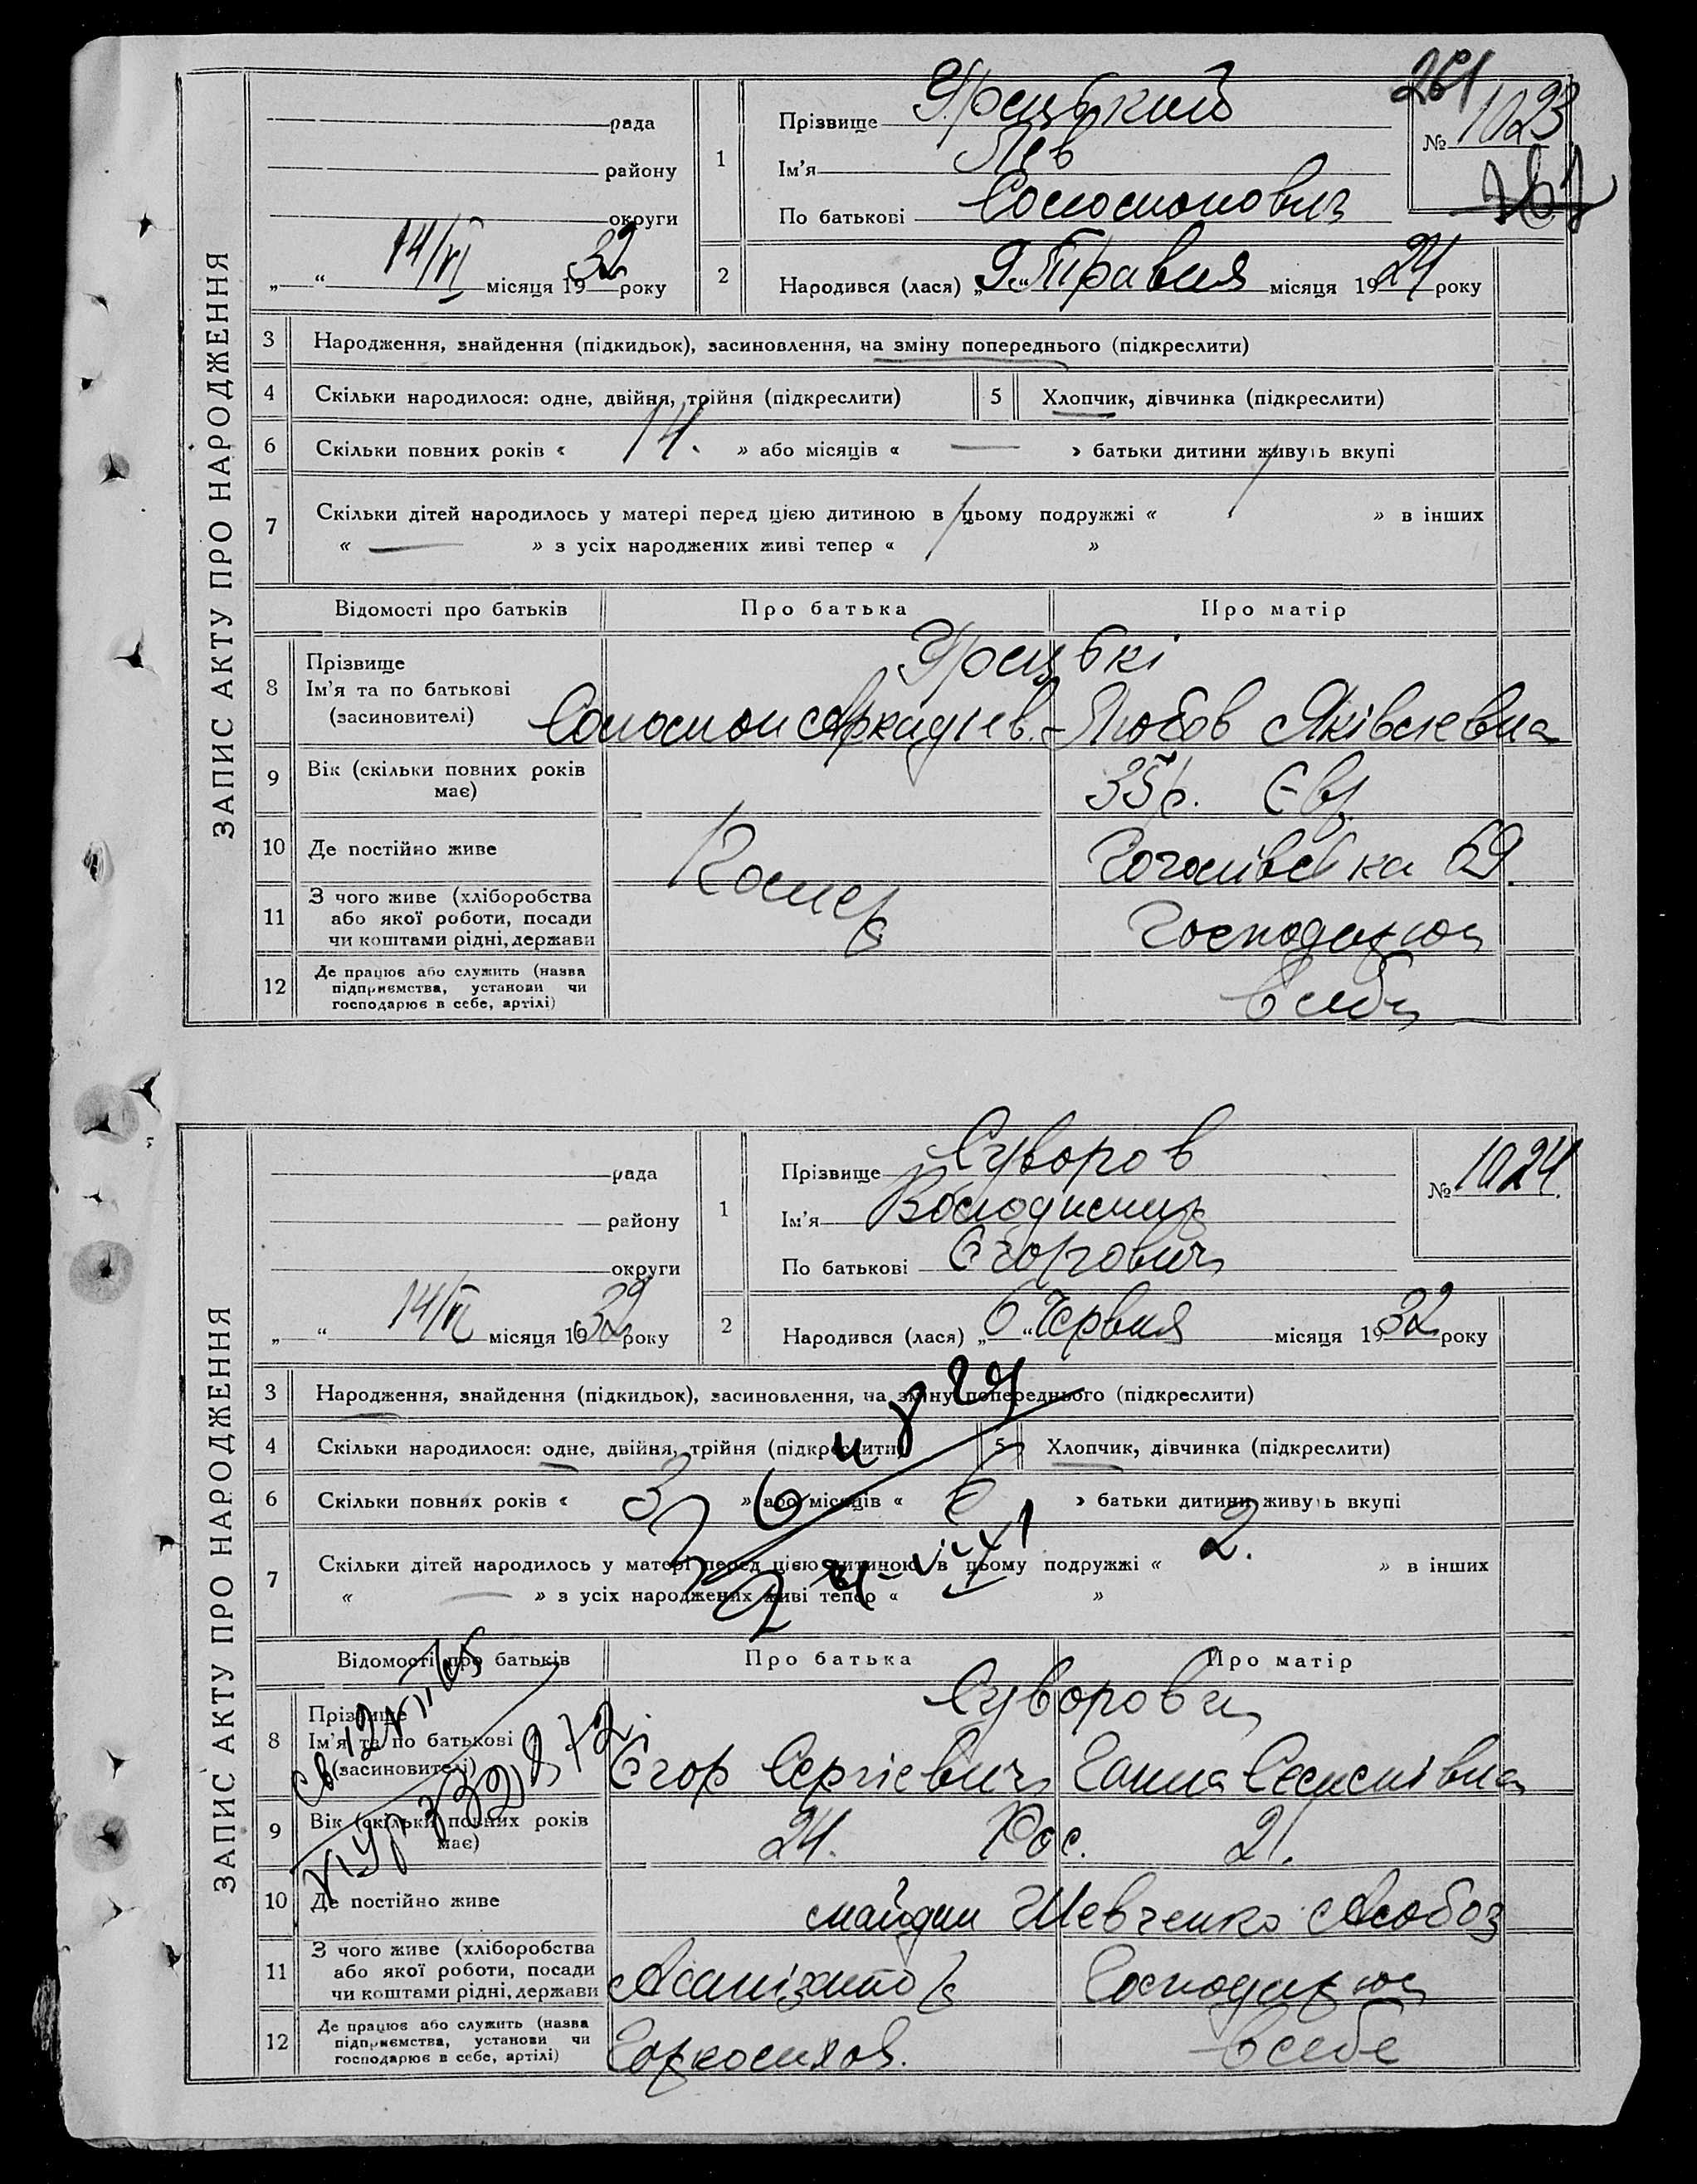 261
ЗАПИС АКТУ ПРО НАРОДЖЕННЯ
рада
району
округи
„ “ 14/VI місяця 1932 року
1
Прізвище
Ім'я Лев
По батькові Соломонович
№ 1023
2
Народився (лася) „9“ Травня місяця 1924 року
3 Народження, знайдення (підкидьок), засиновлення, на зміну попереднього (підкреслити)
4 Скільки народилося: одне, двійня, трійня (підкреслити)
5 Хлопчик, дівчинка (підкреслити)
6 Скільки повних років « 14. » або місяців « — » батьки дитини живуть вкупі
7 Скільки дітей народилось у матері перед цією дитиною в цьому подружжі « 1 » в інших
« — » з усіх народжених живі тепер « 1 »
Відомості про батьків Про батька Про матір
8 Прізвище
Ім'я та по батькові Соломон Аркадієв. - Любов Яківлевна
(засновителі)
9 Вік (скільки повних років має) 35 р. Євр.
10 Де постійно живе Гоголівська 69.
Помер
11 З чого живе (хліборобства або якої роботи, посади чи коштами рідні, держави Господарює
12 Де працює або служить (назва підприємства, установи чи господарює в себе, артілі) в себе
ЗАПИС АКТУ ПРО НАРОДЖЕННЯ
рада
району
округи
„ “ 14/VI місяця 1932 року
1
Прізвище Суворов
Ім'я Володимир
По батькові Єгорович
№ 1024
2
Народився (лася) „6“ Червня місяця 1932 року
3 Народження, знайдення (підкидьок), засиновлення, на зміну попереднього (підкреслити)
4 Скільки народилося: одне, двійня, трійня (підкреслити)
5 Хлопчик, дівчинка (підкреслити)
6 Скільки повних років « 3 » або місяців « 6 » батьки дитини живуть вкупі
7 Скільки дітей народилось у матері перед цією дитиною в цьому подружжі « 2. » в інших
« — » з усіх народжених живі тепер « »
Відомості про батьків Про батька Про матір
8 Прізвище Суворови
Ім'я та по батькові Єгор Сергієвич Ганна Семенівна
(засиновителі)
9 Вік (скільки повних років має) 24. Рос. 21.
10 Де постійно живе майдан Шевченко
11 З чого живе (хліборобства або якої роботи, посади чи коштами рідні, держави Господарює
12 Де працює або служить (назва підприємства, установи чи господарює в себе, артілі) в себе